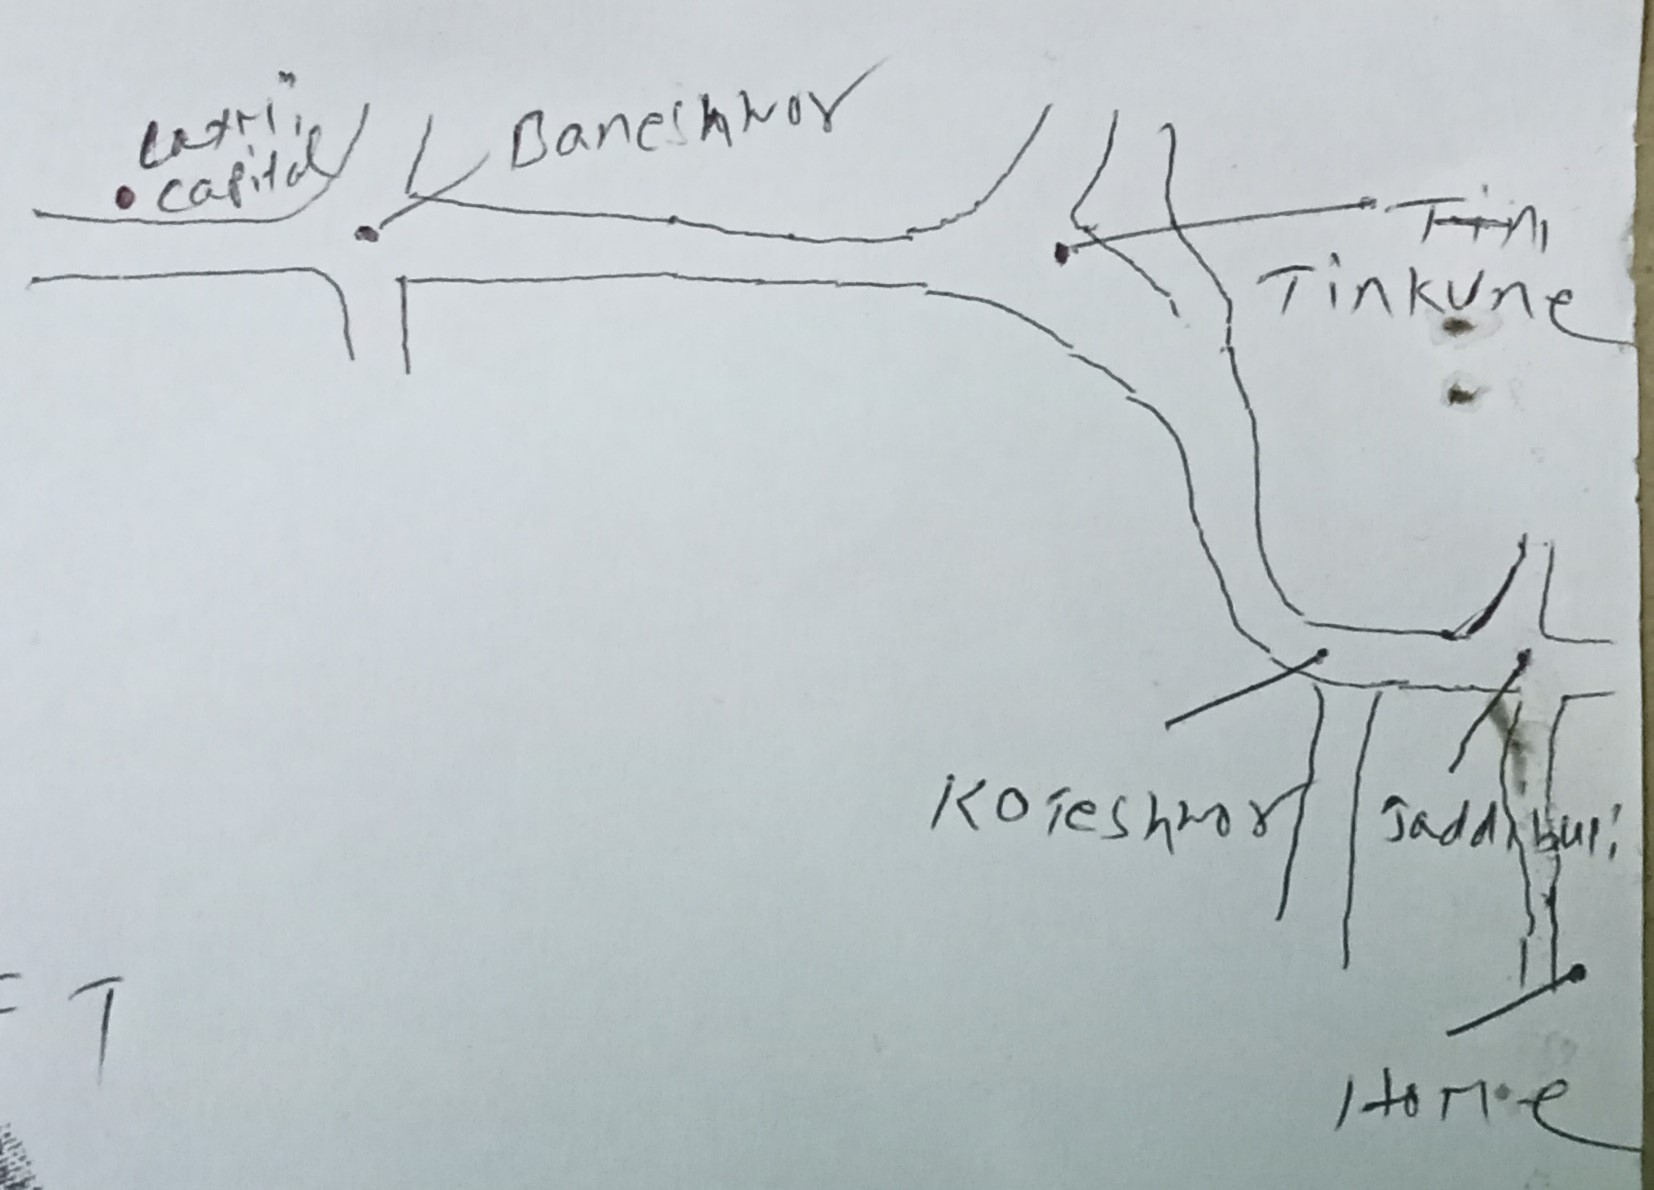 Laxmi
capital
Baneshwor
Tini
Tinkune
Koteshwor
Jaddibuti
Home